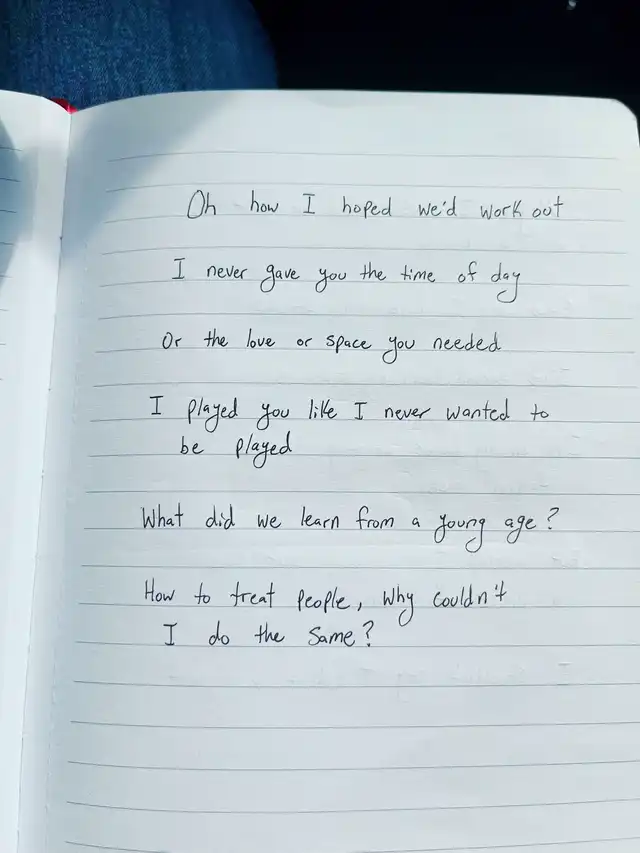 Oh how I hoped we'd work out
I never gave you the time of day
Or the love or space you needed
I played you like I never wanted to
be played
What did we learn from a young age?
How to treat people, why couldn't
I do the same?